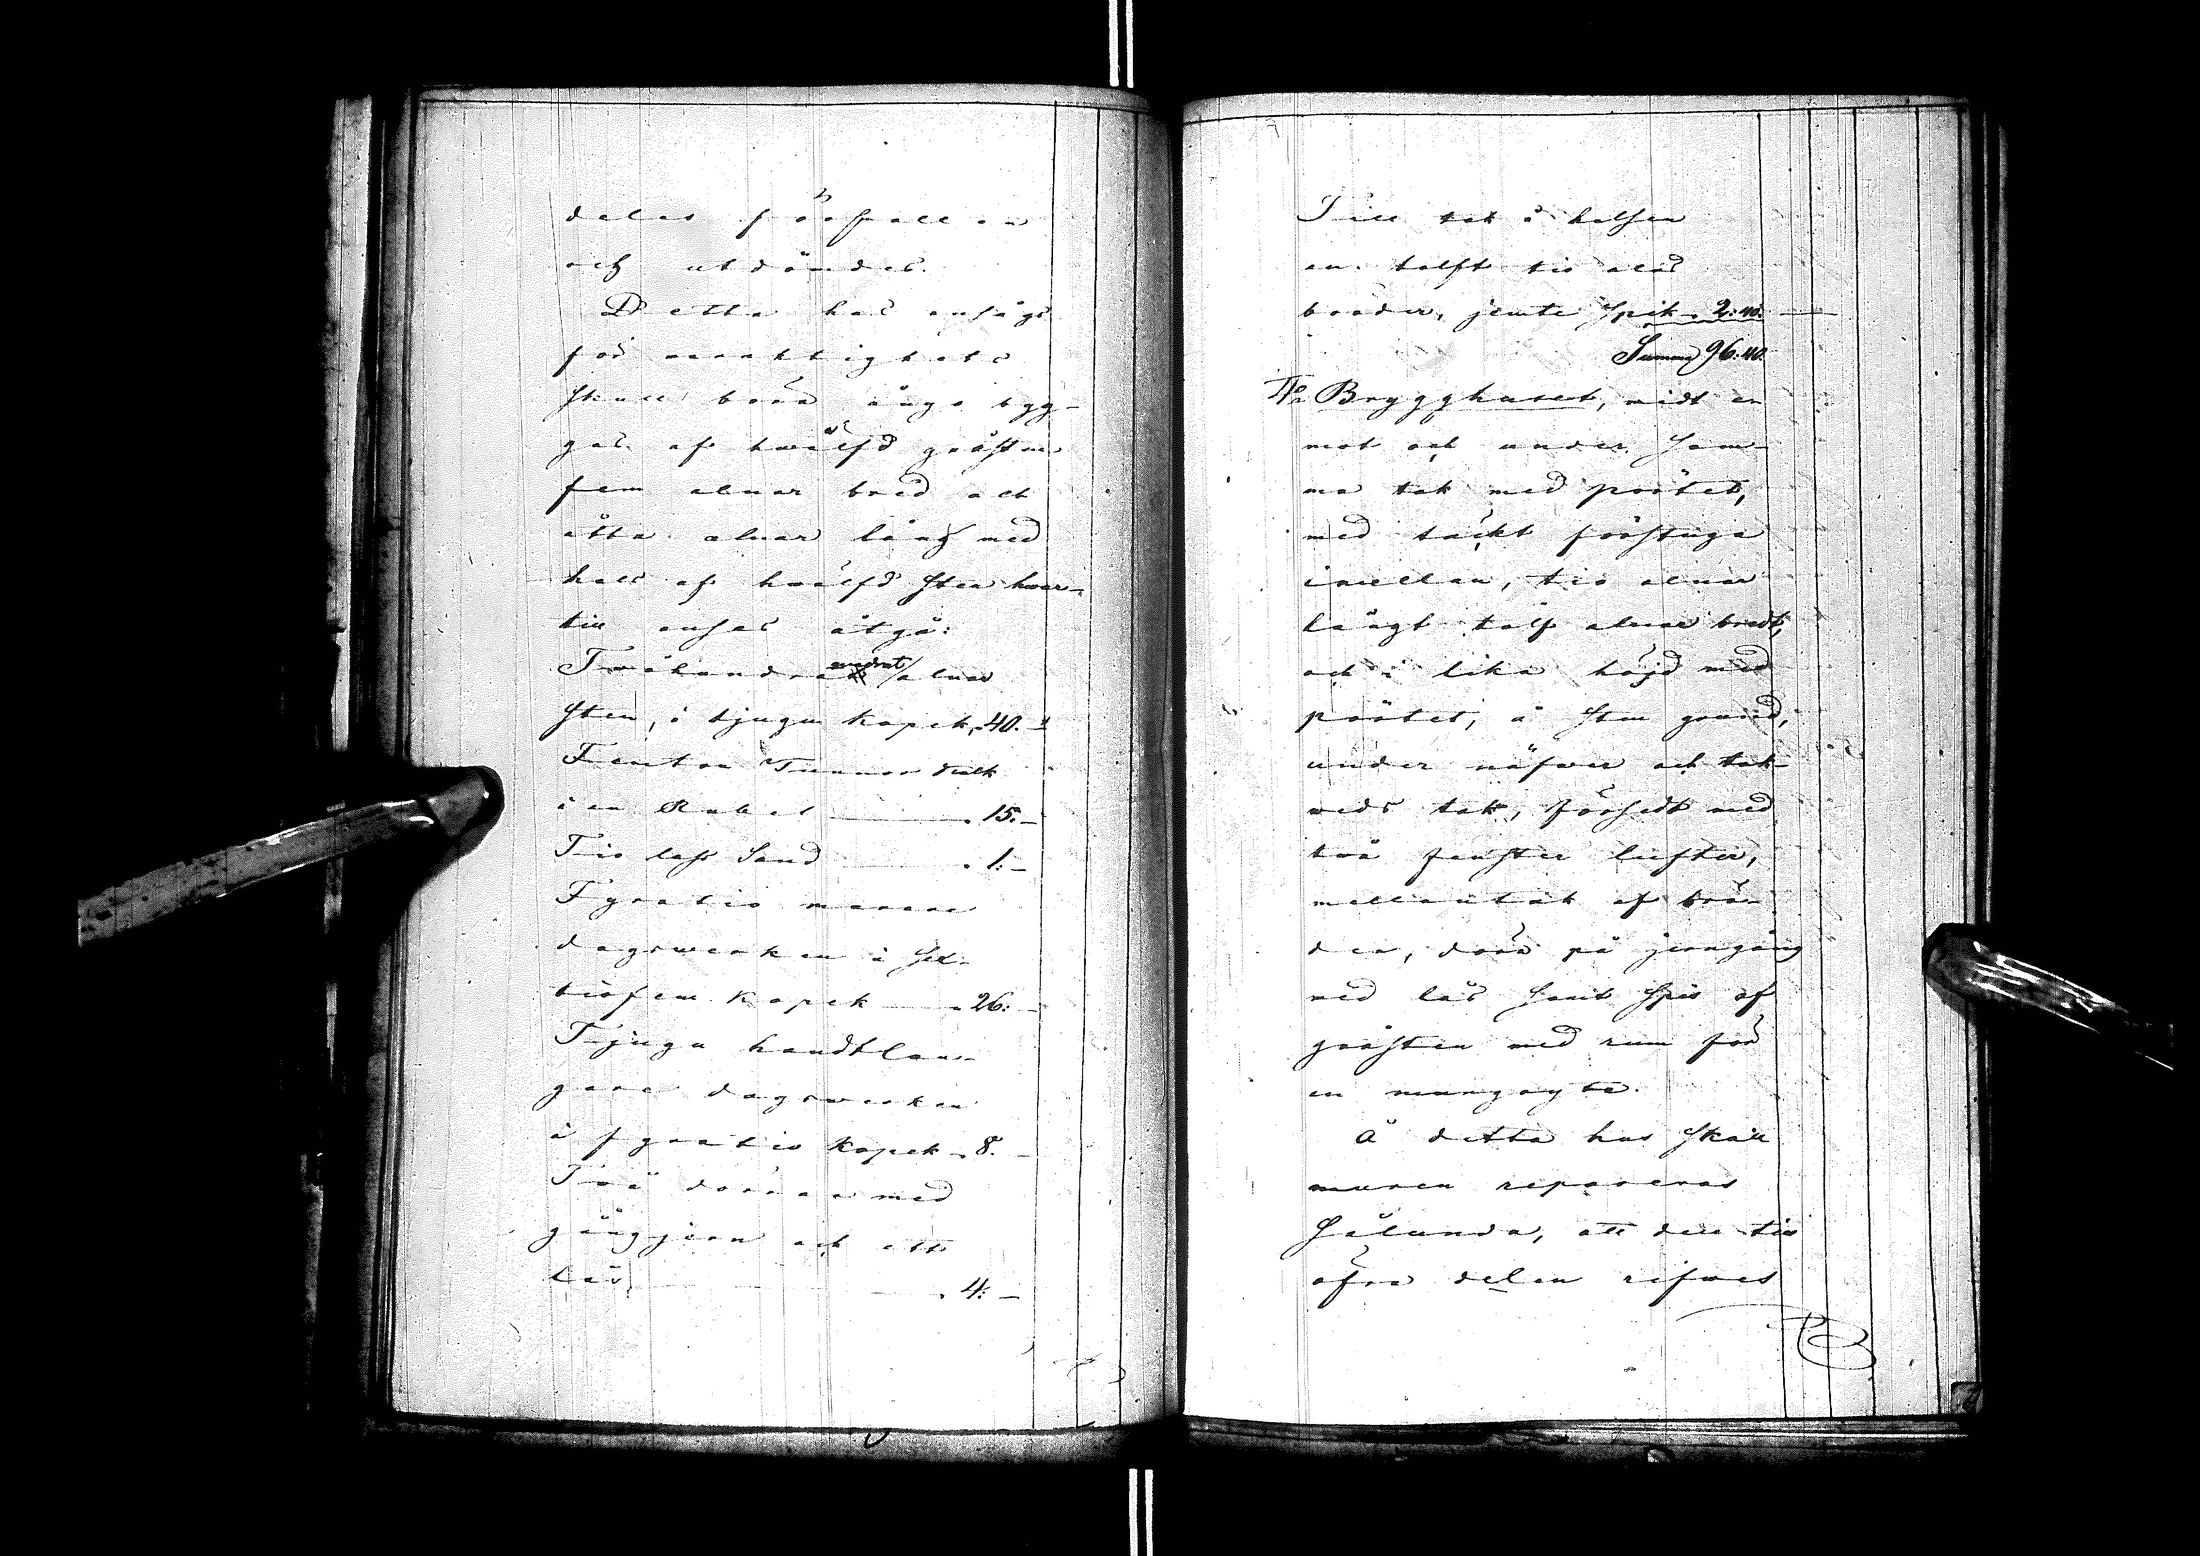 deles förfallen
och utdömdes.
Detta hus ansågs
för nenaktighets
skull böra ånyo byg-
gas af hwälfd gråsten
fem alnar bred och
åtta alnar lång med
hall af hwälfd sten hwar-
till anses åtgå:
Twåhundra qvadrat alnar
sten, à tjugu kopek, 40. -
Femton Tunnor kalk
à en Rubel . 15. -
Tio lass Sand . 1: -
Fyratio murare
dagswerken à sex-
tiofem kopek . 26: -
Tjugu handtlan-
gare dagswerken
à fyratio kopek . 8. -
Två dörrar med
gångjern och ett
lås . 4: -
Till tak å halfva
en tolft tio alns
bräder, jemte spik . 2: 40.
Summa 96: 40.
No Brygghuset, midt e
mot och under sam-
ma tak med pörtet,
med täckt förstuga
imellan, tio alnar
långt tolf alnar bredt,
och i lika höjd med
pörtet, å sten grund,
under näfver och tak-
veds tak, försedt med
två fenster lufter,
mellantak af brä-
der, dörr på jerngång
med lås samt spis af
gråsten med rum för
en murgryta.
Å detta hus skall
muren repareras
sålunda, att den till
öfra delen rifves